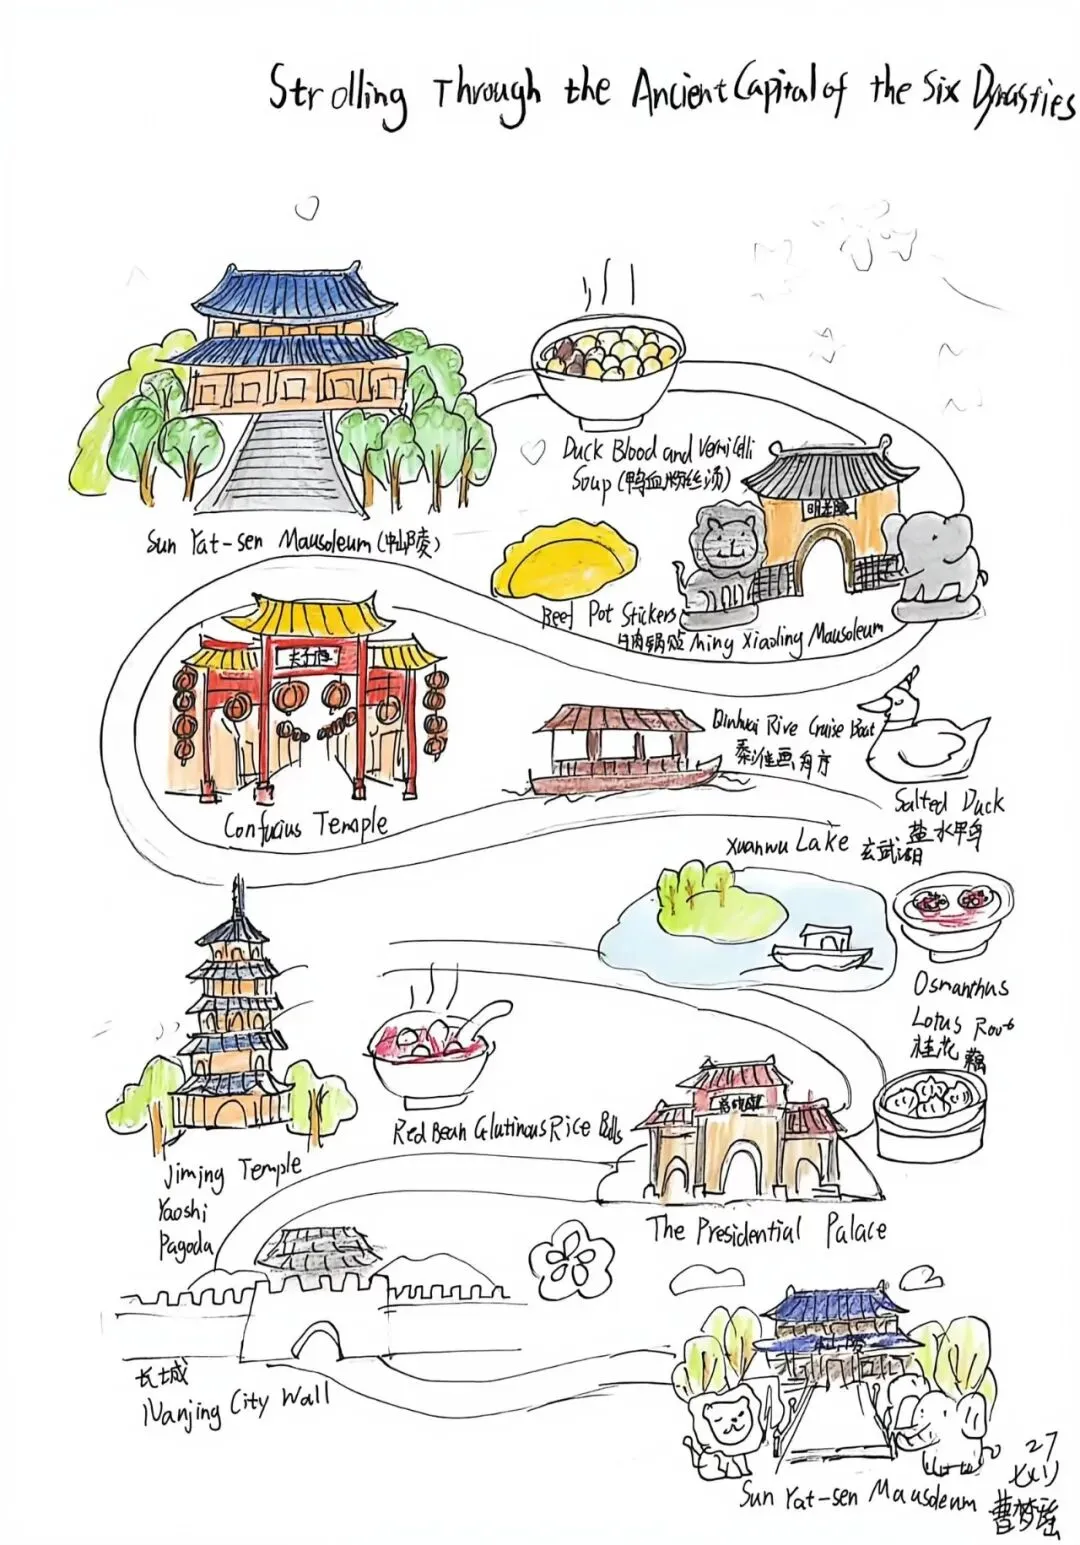 Strolling Through the Ancient Capital of the Six Dynasties
Duck Blood and Vermicelli
Soup (鸭血粉丝汤)
明孝陵
Sun Yat-sen Mausoleum (中山陵)
Beef Pot Stickers
牛肉锅贴 Ming Xiaoling Mausoleum
夫子庙
Qinhuai Rive Cruise Boat
秦淮画舫
Confucius Temple
Salted Duck
盐水鸭
Xuanwu Lake 玄武湖
Osmanthus
Lotus Root
桂花藕
Red Bean Glutinous Rice Balls
Jiming Temple
Yaoshi
Pagoda
The Presidential Palace
中山陵
长城
Nanjing City Wall
Sun Yat-sen Mausoleum
27
曹梦瑶